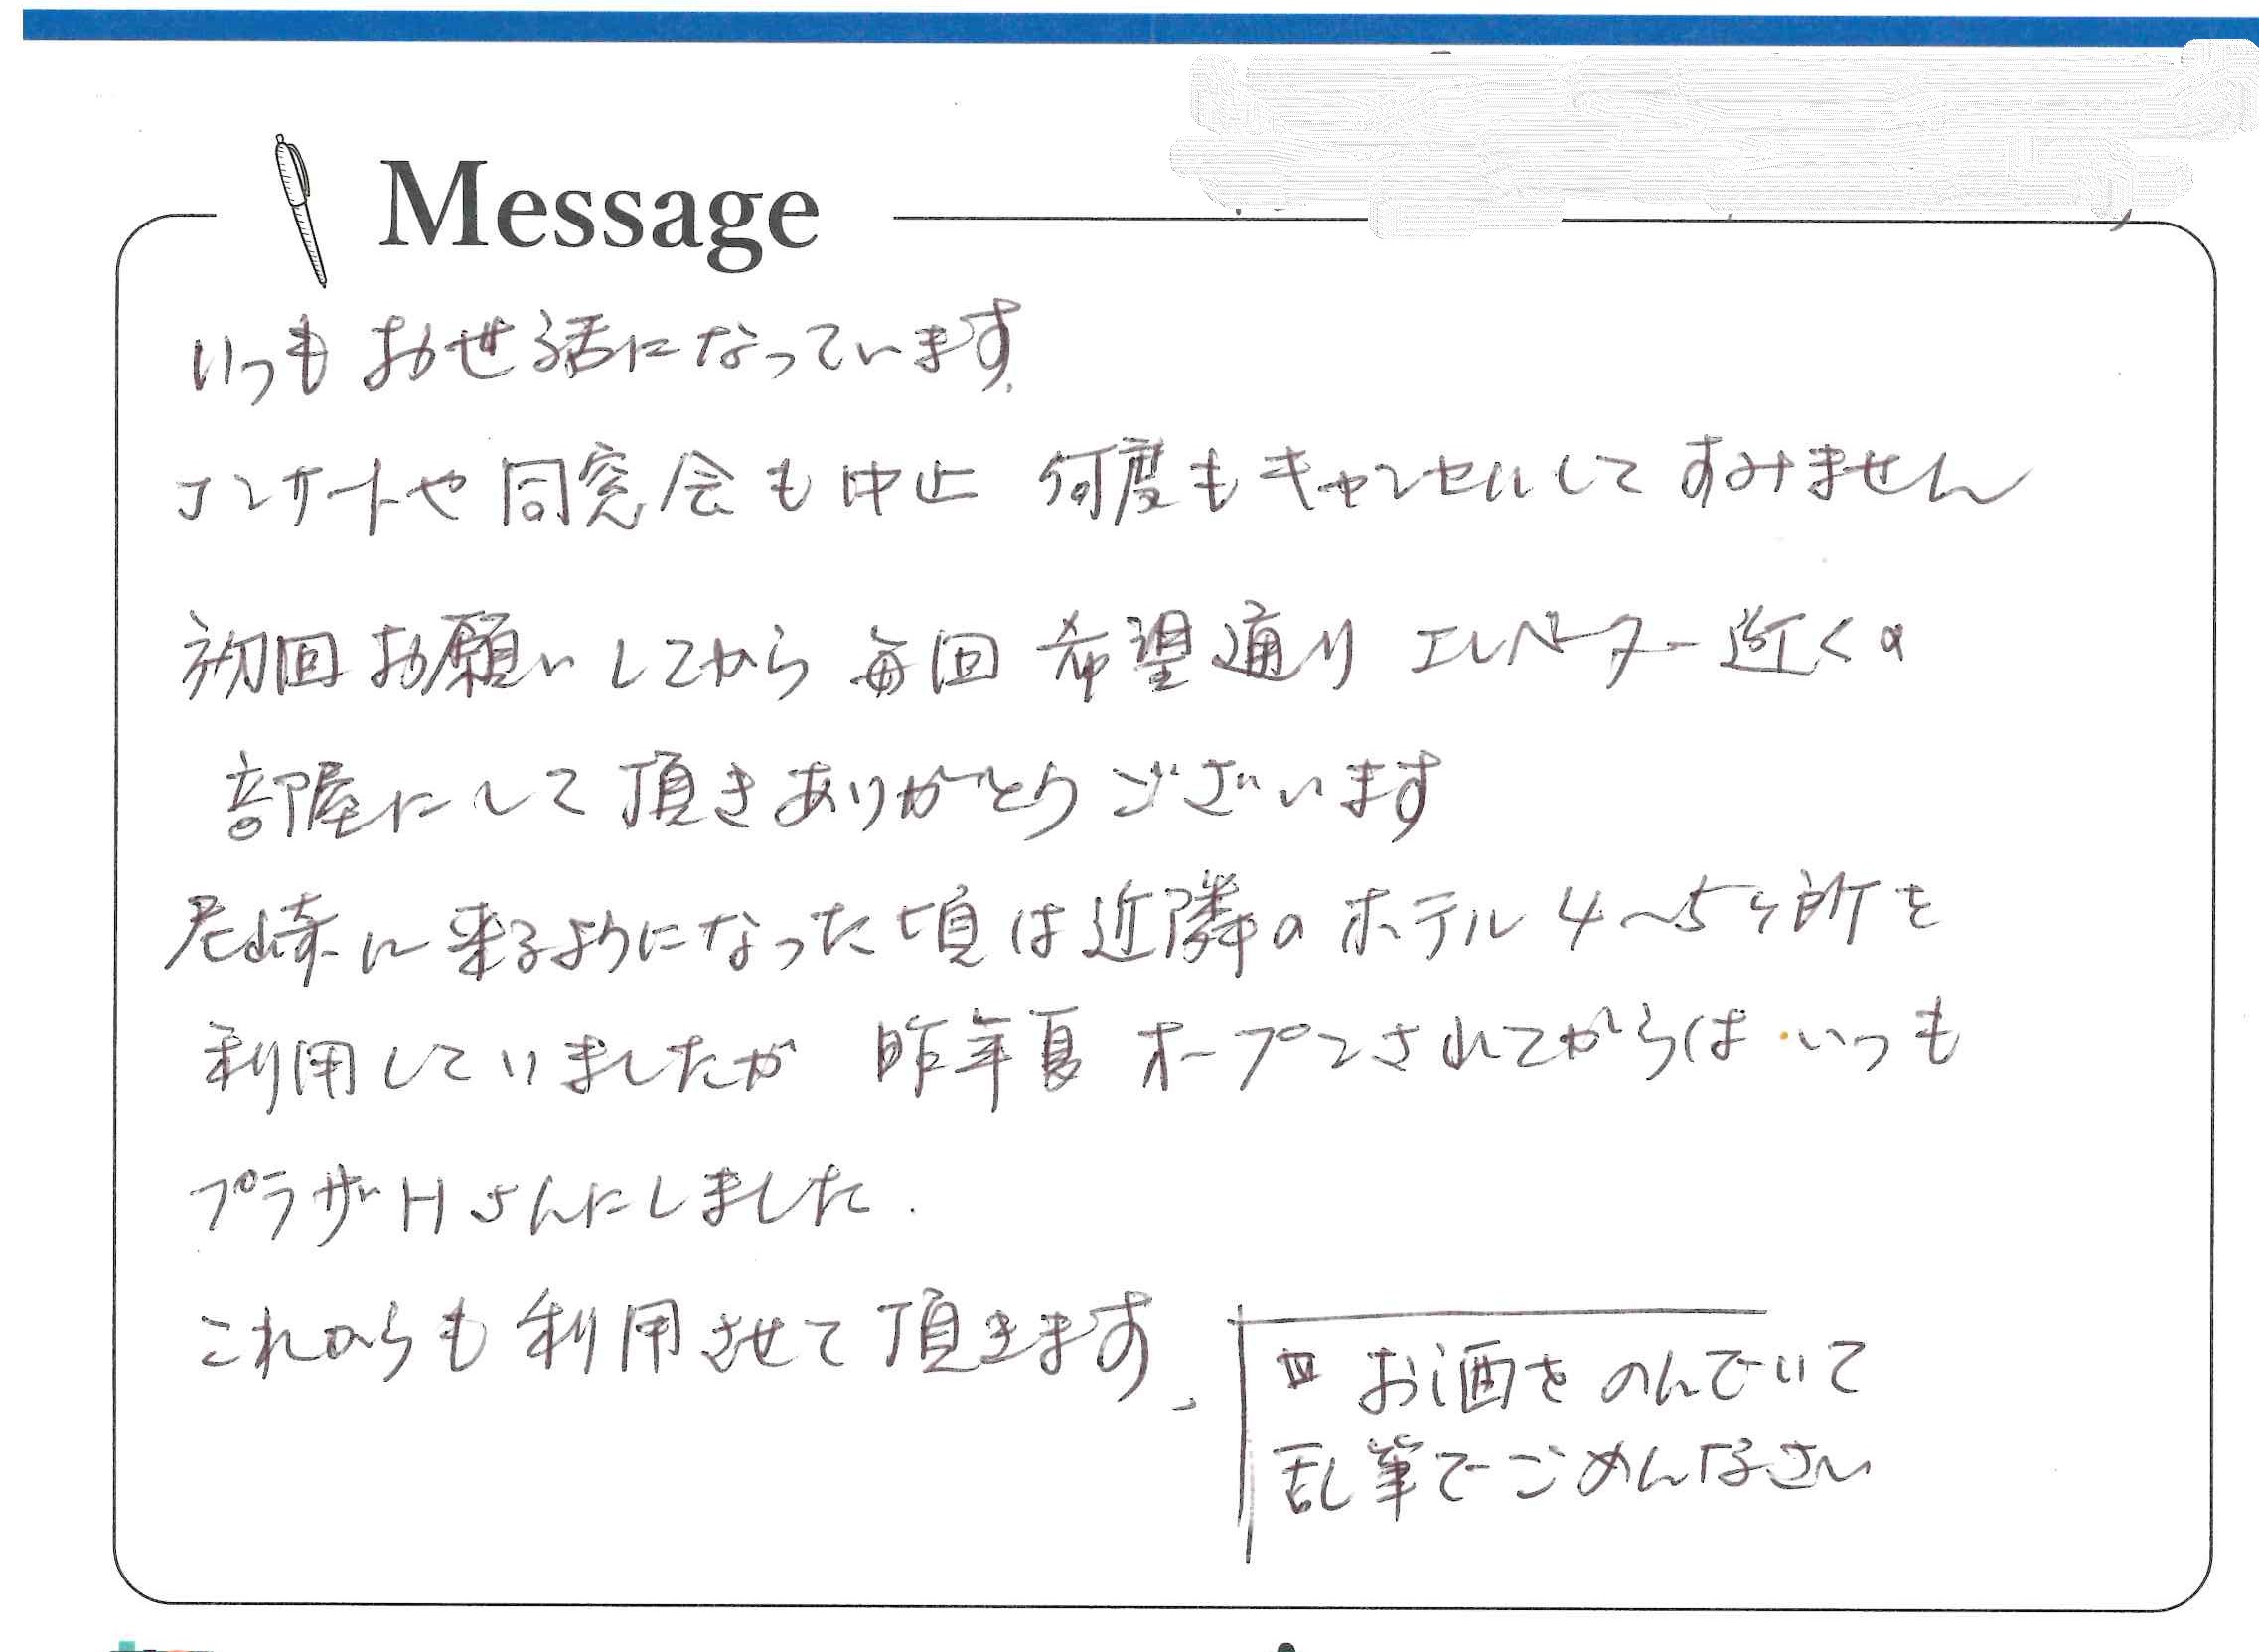 Message
いつもお世話になっています.
コンサートや同窓会も中止 何度もキャンセルして すみません
初回お願いしてから 毎回 希望通り エレベーター近くの
部屋にして頂きありがとうございます
尼崎に来るようになった頃は近隣のホテル4～5ヶ所を
利用していましたが 昨年夏 オープンされてからは いつも
プラザHさんにしました.
これからも利用させて頂きます、
お酒をのんでいて
乱筆でごめんなさい